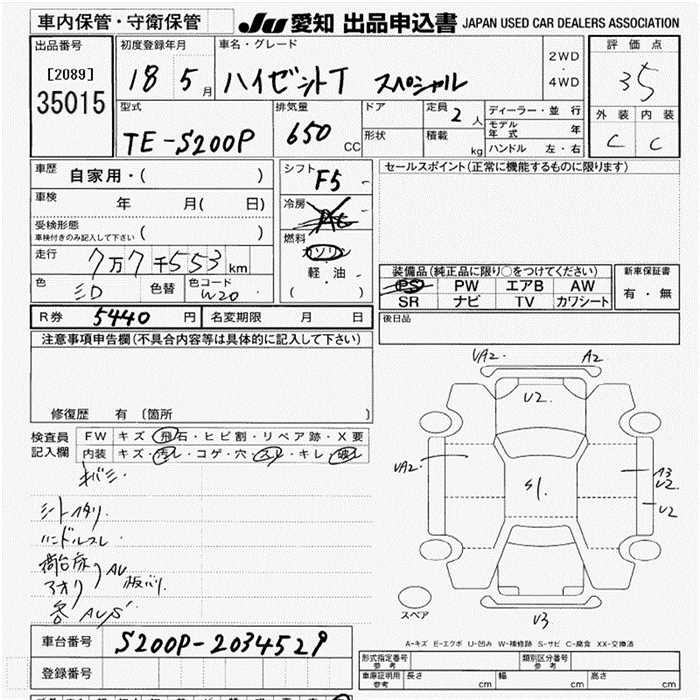 車内保管・守衛保管 JU 愛知 出品申込書 JAPAN USED CAR DEALERS ASSOCIATION
出品番号 初度登録年月 車名・グレード 評価点
[2089] 18 5月 ハイゼットT スペシャル 2WD・4WD 3.5
35015
型式 排気量 ドア 定員 2人 ディーラー・並行 外装 内装
TE-S200P 650 CC 形状 積載 kg モデル年式 年 C C
ハンドル 左・右
車歴 自家用・( ) シフト F5 セールスポイント(正常に機能するものに限ります)
車検 年 月( 日) 冷房
受検形態
車検付きのみ記入して下さい ( ) 燃料
走行 7万7千553km ガソリン
軽・油
( )
装備品(純正品に限り○をつけてください) 新車保証書
色 色替 色コード W20 PS PW エアB AW 有・無
SR ナビ TV カワシート
R券 5440円 名変期限 月 日 後日品
注意事項申告欄(不具合内容等は具体的に記入して下さい)
修復歴 有 〔箇所 〕
検査員記入欄 FW キズ・飛石・ヒビ割・リペア跡・X要
内装 キズ・汚レ・コゲ・穴・スレ・キレ・破レ
キバミ
シートヘタリ
ハンドルスレ
荷台床
アオリ AU 板バリ
各AUS
VA2. A2.
U2.
VA2.
S1.
A3
U2
U2
V3
スペア
A-キズ E-エクボ U-凹み W-補修跡 S-サビ C-腐食 XX-交換済
車台番号 S200P-2034529
登録番号
形式指定番号 参考 類別区分番号 参考
車庫証明用 参考 長さ cm 幅 cm 高さ cm